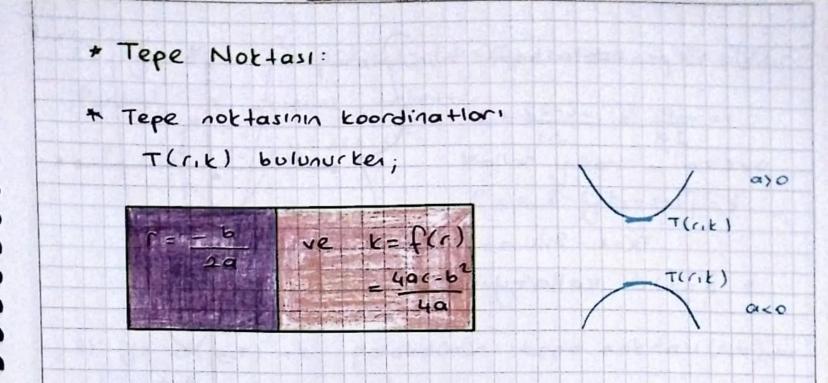 * Tepe Noktası:
* Tepe noktasının koordinatları
T(r,k) bulunurken;
r = - b/2a ve k = f(r)
= 4ac-b²/4a
a>0
T(r,k)
T(r,k)
a<0